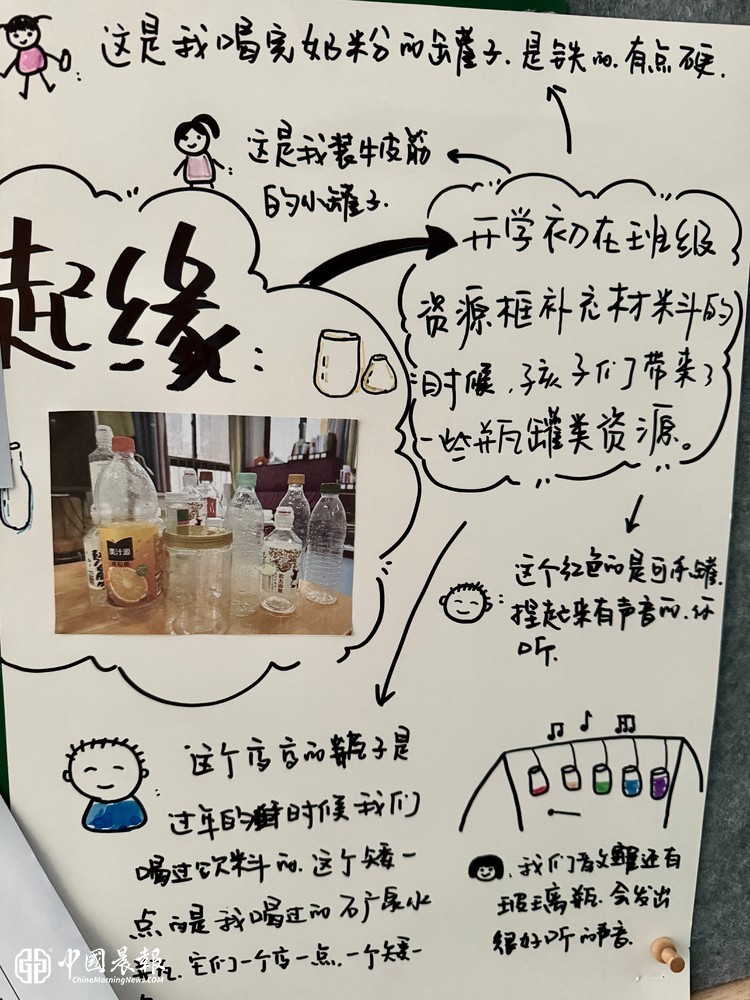 这是我喝完奶粉的罐子.是铁的.有点硬.
这是我装牛皮筋
的小罐子.
起缘:
开学初在班级
资源框补充材料的
时候,孩子们带来了
一些瓶罐类资源。
美汁源
这个红色的是可乐罐.
捏起来有声音的.
听.
这个高高的瓶子是
过年的时候我们
喝过饮料的.这个矮一
点的是我喝过的矿泉水
它们一个高一点.一个矮一
我们
还有
玻璃瓶.会发出
很好听的声音.
中國晨報
ChinaMorningNews.com